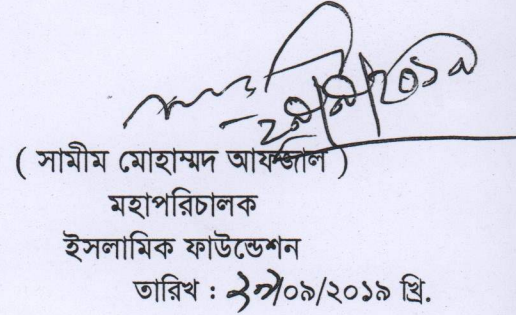 ( সামীম মোহাম্মদ আফজাল )
মহাপরিচালক
ইসলামিক ফাউন্ডেশন
তারিখ : /০৯/২০১৯ খ্রি.